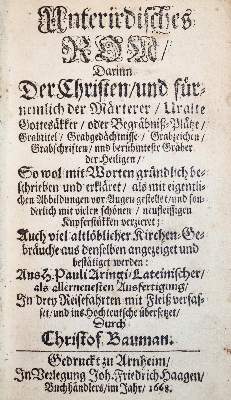 Unterirdisches
ROM/
Darinn
Der Christen/und für-
nemlich der Märterer/ Uralte
Gottesäkker/ oder Begräbniß-Plätze/
Grabtitel/ Grabgedächtnisse/ Grabzeichen/
Grabschriften/ und berühmteste Gräber
der Heiligen/
So wol mit Worten gründlich be-
schrieben und erkläret/ als mit eigentli-
chen Abbildungen vor Augen gestellet/ und son-
derlich mit vielen schönen/
Kupferstükken verzieret;
Auch viel altlöblicher Kirchen-Ge-
bräuche aus denselben angezeiget und
bestätiget werden:
Aus H. Pauli Aringi/ Lateinischer/
als Allerneuesten Ausfertigung/
In drey Reisefahrten mit Fleiß verfas-
set/ und ins Hochteutsche übersetzet/
Durch
Christof Bauman.
Gedruckt zu Arnheim/
In Verlegung Joh. Friedrich Haagen/
Buchhändlers/ im Jahr/ 1668.